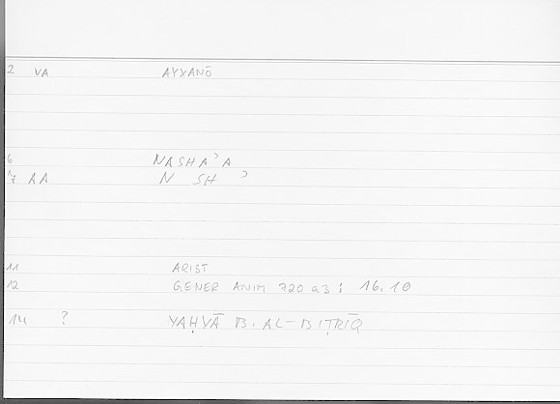 2 VA AYYANŌ
6 NASHAʾA
7 AA N SH ʾ
11 ARIST
12 GENER ANIM 720 a3 : 16.10
14 ? YAḤYĀ B. AL-BIṬRĪQ